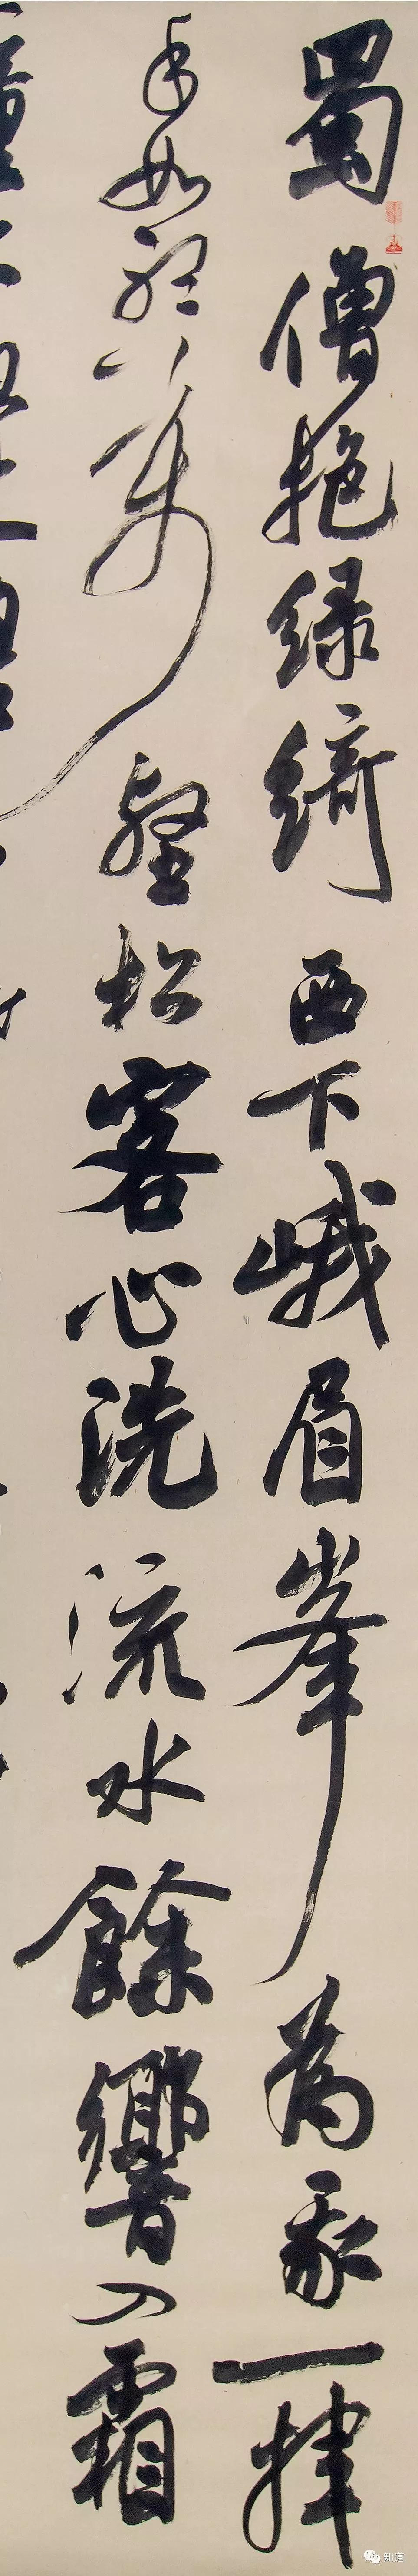 蜀僧抱綠綺西下峨眉峯為我一揮
手如聽萬壑松客心洗流水餘響入霜
知道